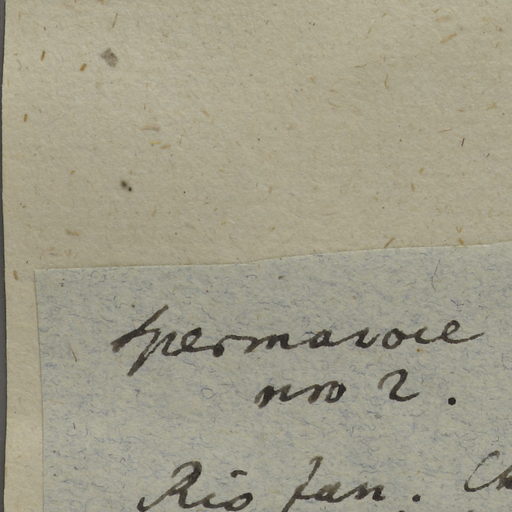 Spermavoce
nro 2.
Rio Jan. Ch